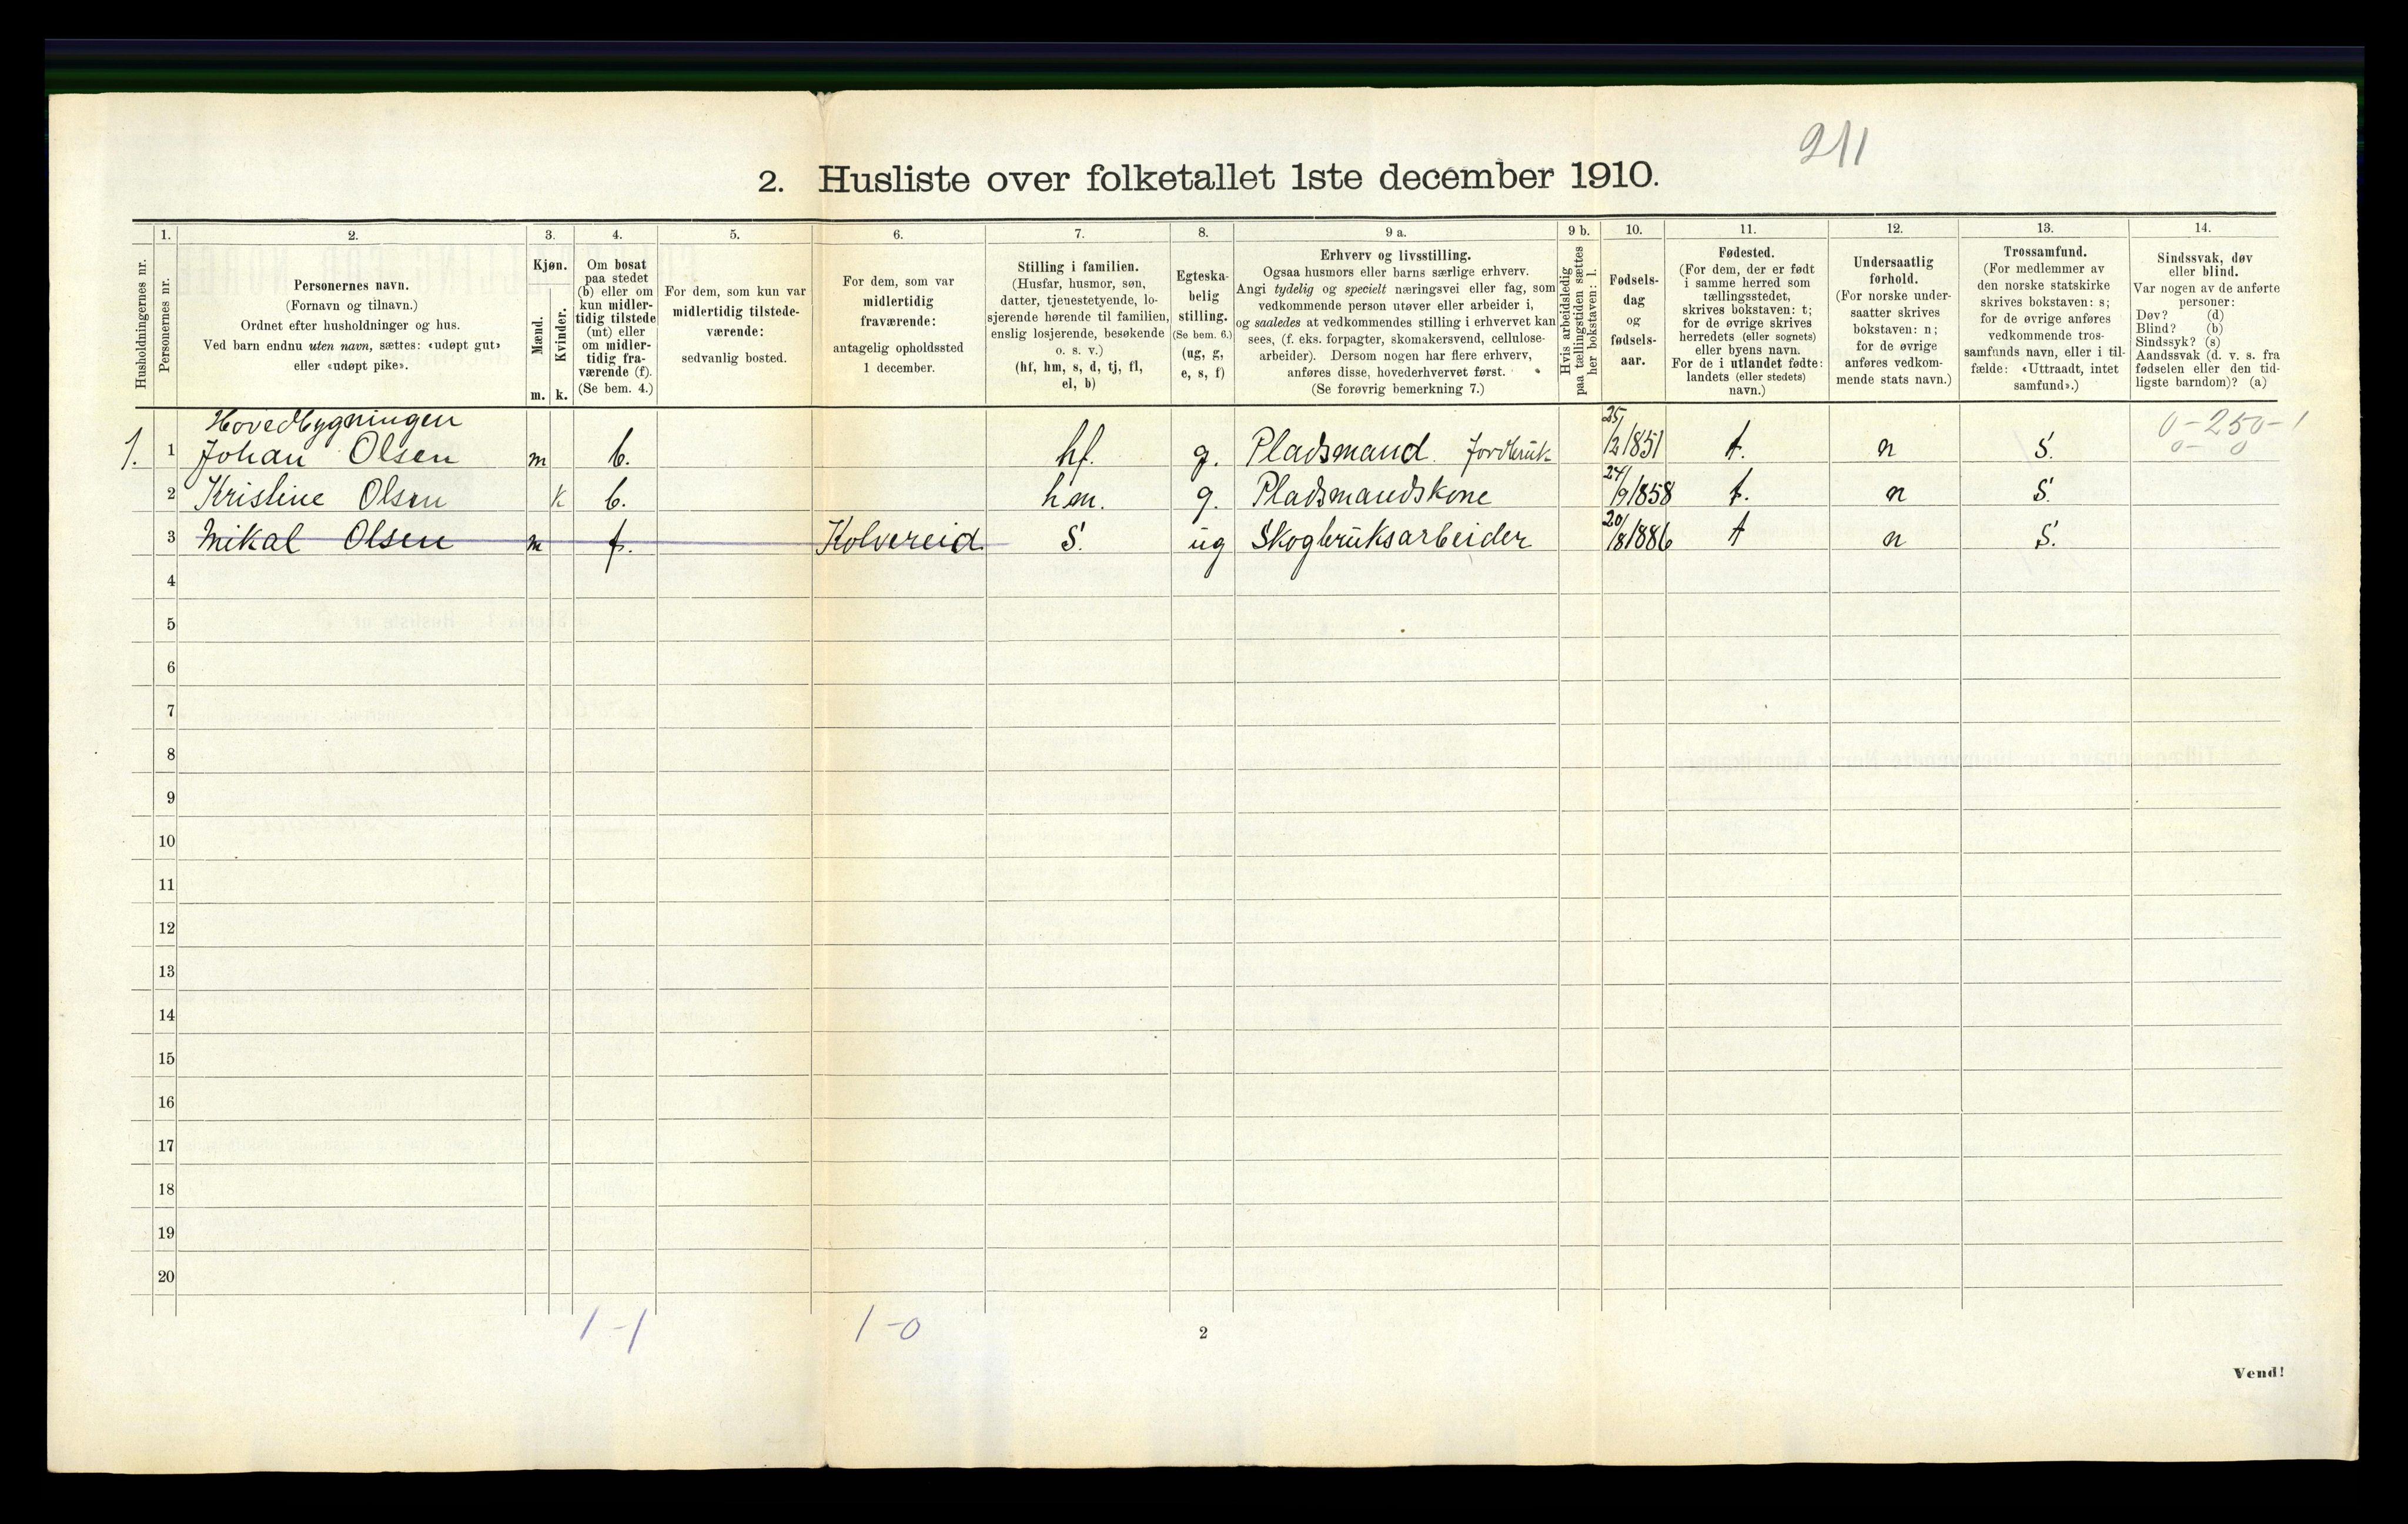 211
2. Husliste over folketallet 1ste december 1910.
Husholdningernes nr.
1.
Personernes nr.
2.
Personernes navn.
(Fornavn og tilnavn.)
Ordnet efter husholdninger og hus.
Ved barn endnu uten navn, sættes: «udøpt gut»
eller «udøpt pike».
3.
Kjøn.
Mænd.
Kvinder.
m. k.
4.
Om bosat
paa stedet
(b) eller om
kun midler-
tidig tilstede
(mt) eller
om midler-
tidig fra-
værende (f).
(Se bem. 4.)
5.
For dem, som kun var
midlertidig tilstede-
værende:
sedvanlig bosted.
6.
For dem, som var
midlertidig
fraværende:
antagelig opholdssted
1 december.
7.
Stilling i familien.
(Husfar, husmor, søn,
datter, tjenestetyende, lo-
sjerende hørende til familien,
enslig losjerende, besøkende
o. s. v.)
(hf, hm, s, d, tj, fl,
el, b)
8.
Egteska-
belig
stilling.
(Se bem. 6.)
(ug, g,
e, s, f)
9 a.
Erhverv og livsstilling.
Ogsaa husmors eller barns særlige erhverv.
Angi tydelig og specielt næringsvei eller fag, som
vedkommende person utøver eller arbeider i,
og saaledes at vedkommendes stilling i erhvervet kan
sees, (f. eks. forpagter, skomakersvend, cellulose-
arbeider). Dersom nogen har flere erhverv,
anføres disse, hovederhvervet først.
(Se forøvrig bemerkning 7.)
9 b.
Hvis arbeidsledig
paa tællingstiden sættes
her bokstaven: l.
10.
Fødsels-
dag
og
fødsels-
aar.
11.
Fødested.
(For dem, der er født
i samme herred som
tællingsstedet,
skrives bokstaven: t;
for de øvrige skrives
herredets (eller sognets)
eller byens navn.
For de i utlandet fødte:
landets (eller stedets)
navn.)
12.
Undersaatlig
forhold.
(For norske under-
saatter skrives
bokstaven: n;
for de øvrige
anføres vedkom-
mende stats navn.)
13.
Trossamfund.
(For medlemmer av
den norske statskirke
skrives bokstaven: s;
for de øvrige anføres
vedkommende tros-
samfunds navn, eller i til-
fælde: «Uttraadt, intet
samfund».)
14.
Sindssvak, døv
eller blind.
Var nogen av de anførte
personer:
Døv? (d)
Blind? (b)
Sindssyk? (s)
Aandssvak (d. v. s. fra
fødselen eller den tid-
ligste barndom)? (a)
Hovedbygningen
1. 1 Johan Olsen m b. hf. g. Pladsmand. Jordbruk 25/12 1851 t. n S. 0-250-1
0- 0
2 Kristine Olsen k b. hm. g. Pladsmandskone 24/9 1858 t. n S.
3 Mikal Olsen m f. Kolvereid S. ug Skogbruksarbeider 20/8 1886 t n S.
4
5
6
7
8
9
10
11
12
13
14
15
16
17
18
19
20
1-1 1-0
2
Vend!